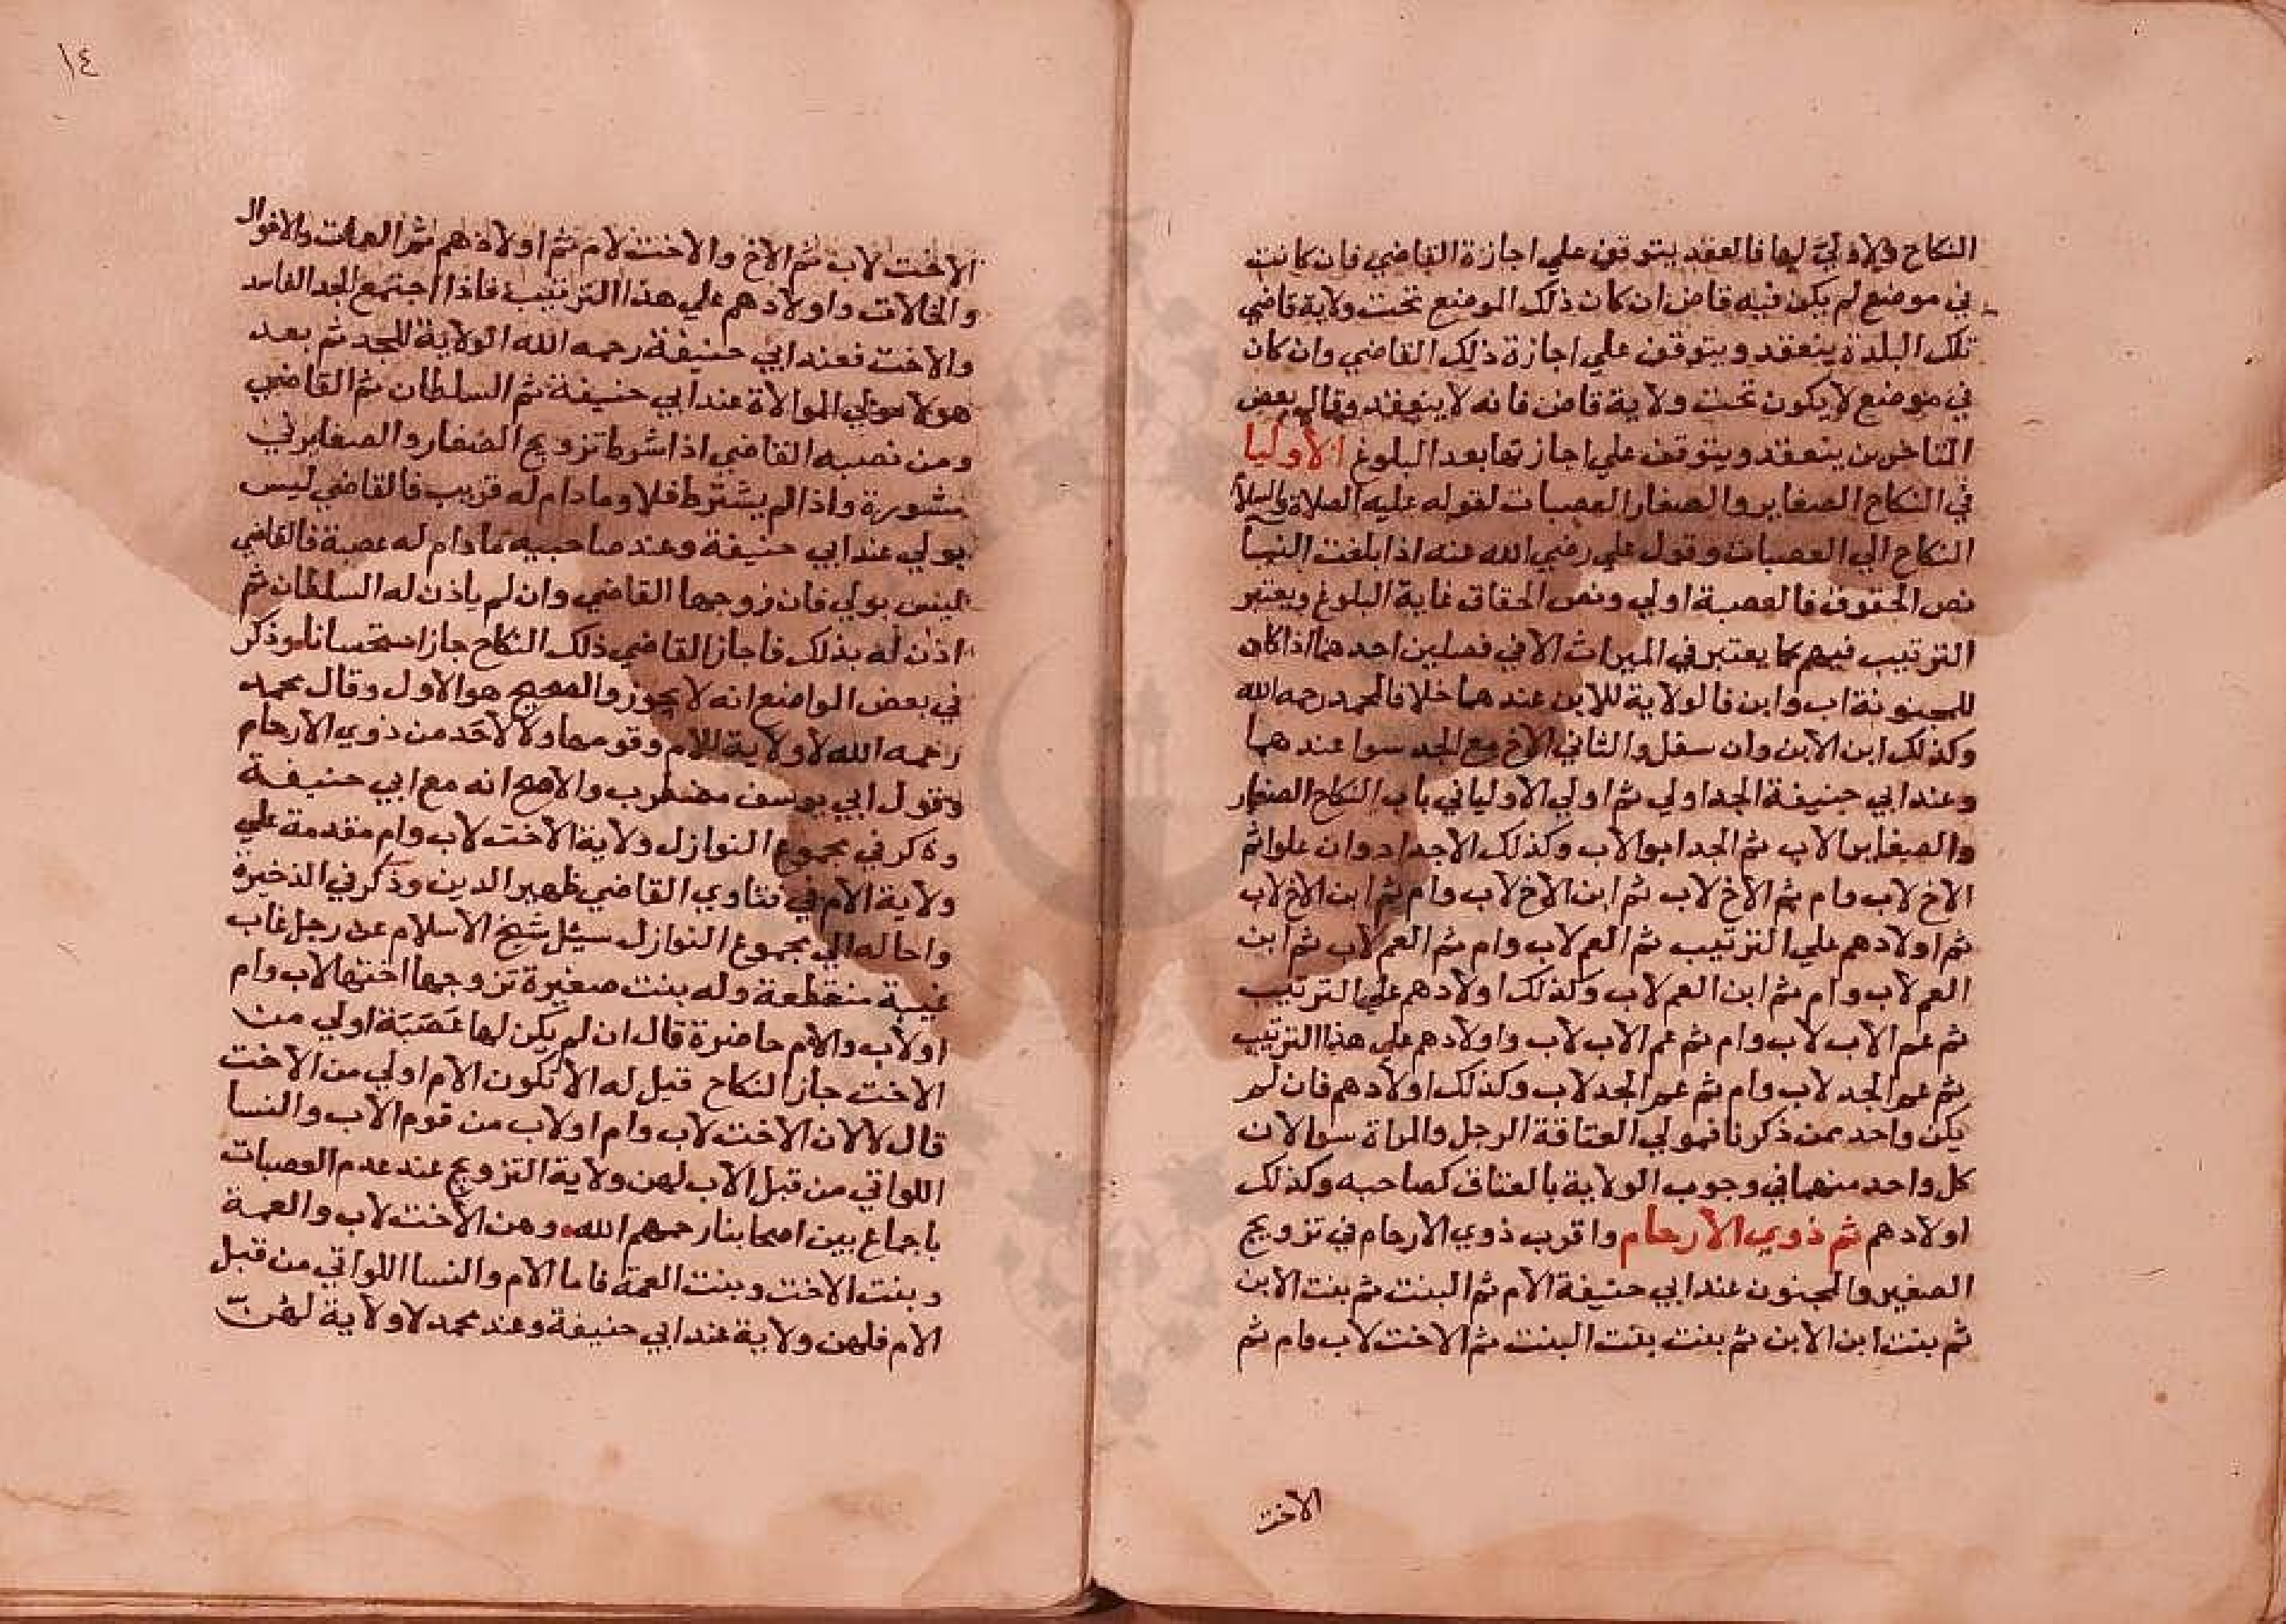 النكاح ولا ولي لها فالعقد يتوقف علي اجازة القاضي فان كانت
في موضع لم يكن فيه قاض ان كان ذلك الموضع تحت ولاية قاضي
تلك البلدة ينعقد ويتوقف علي اجازة ذلك القاضي وان كان
في موضع لا يكون تحت ولاية قاض فانه لا ينعقد وقال بعض
المتاخرين ينعقد ويتوقف علي اجازتها بعد البلوغ الاوليا
في النكاح الصغاير والصغار العصبات لقوله عليه الصلاة والسلام
النكاح الي العصبات وقول علي رضي الله عنه اذا بلغت النسا
نص الحقوق فالعصبة اولي ونص الحقاق غاية البلوغ ويعتبر
الترتيب فيهم كما يعتبر في الميراث الا في فصلين احدهما اذا كان
للمجنونة اب وابن فالولاية للابن عندهما خلافا لمحمد رحمه الله
وكذلك ابن الابن وان سفل والثاني الاخ مع الجد سوا عندهما
وعند ابي حنيفة الجد اولي ثم اولي الاوليا في باب النكاح الصغار
والصغاير الاب ثم الجد ابو الاب وكذلك الاجداد وان علوا ثم
الاخ لاب وام ثم الاخ لاب ثم ابن الاخ لاب وام ثم ابن الاخ لاب
ثم اولادهم علي الترتيب ثم العم لاب وام ثم العم لاب ثم ابن
العم لاب وام ثم ابن العم لاب وكذلك اولادهم علي الترتيب
ثم عم الاب لاب وام ثم عم الاب لاب واولادهم علي هذا الترتيب
ثم عم الجد لاب وام ثم عم الجد لاب وكذلك اولادهم فان لم
يكن واحد ممن ذكرنا فمولي العتاقة الرجل والمراة سوا لان
كل واحد منهما في وجوب الولاية بالعتاق كصاحبه وكذلك
اولادهم ثم ذوي الارحام واقرب ذوي الارحام في تزويج
الصغير والمجنون عند ابي حنيفة الام ثم البنت ثم بنت الابن
ثم بنت ابن الابن ثم بنت بنت البنت ثم الاخت لاب وام ثم
الاخت
١٤
الاخت لاب ثم الاخ والاخت لام ثم اولادهم ثم العمات والاخوال
والخالات واولادهم علي هذا الترتيب فاذا اجتمع الجد الفاسد
والاخت فعند ابي حنيفة رحمه الله الولاية للجد ثم بعد
هولا مولي الموالاة عند ابي حنيفة ثم السلطان ثم القاضي
ومن نصبه القاضي اذا شرط تزويج الصغار والصغاير في
منشوره واذا لم يشترط فلا وما دام له قريب فالقاضي ليس
بولي عند ابي حنيفة وعند صاحبيه ما دام له عصبة فالقاضي
ليس بولي فان زوجها القاضي وان لم ياذن له السلطان ثم
اذن له بذلك فاجاز القاضي ذلك النكاح جاز استحسانا وذكر
في بعض المواضع انه لا يجوز والصحيح هو الاول وقال محمد
رحمه الله لا ولاية للام وقومها ولا لاحد من ذوي الارحام
وقول ابي يوسف مضطرب والاصح انه مع ابي حنيفة
وذكر في مجموع النوازل ولاية الاخت لاب وام مقدمة علي
ولاية الام في فتاوي القاضي ظهير الدين وذكر في الذخيرة
واحاله الي مجموع النوازل سيئل شيخ الاسلام عن رجل غاب
غيبة منقطعة وله بنت صغيرة تزوجها اختها لاب وام
او لاب والام حاضرة قال ان لم يكن لها عَصَبَة اولي من
الاخت جاز النكاح قيل له الا تكون الام اولي من الاخت
قال لا لان الاخت لاب وام او لاب من قوم الاب والنسا
اللواتي من قبل الاب لهن ولاية التزويج عند عدم العصبات
باجماع بين اصحابنا رحمهم الله وهن الاخت لاب والعمة
وبنت الاخت وبنت العمة فاما الام والنسا اللواتي من قبل
الام فلهن ولاية عند ابي حنيفة وعند محمد لا ولاية لهن